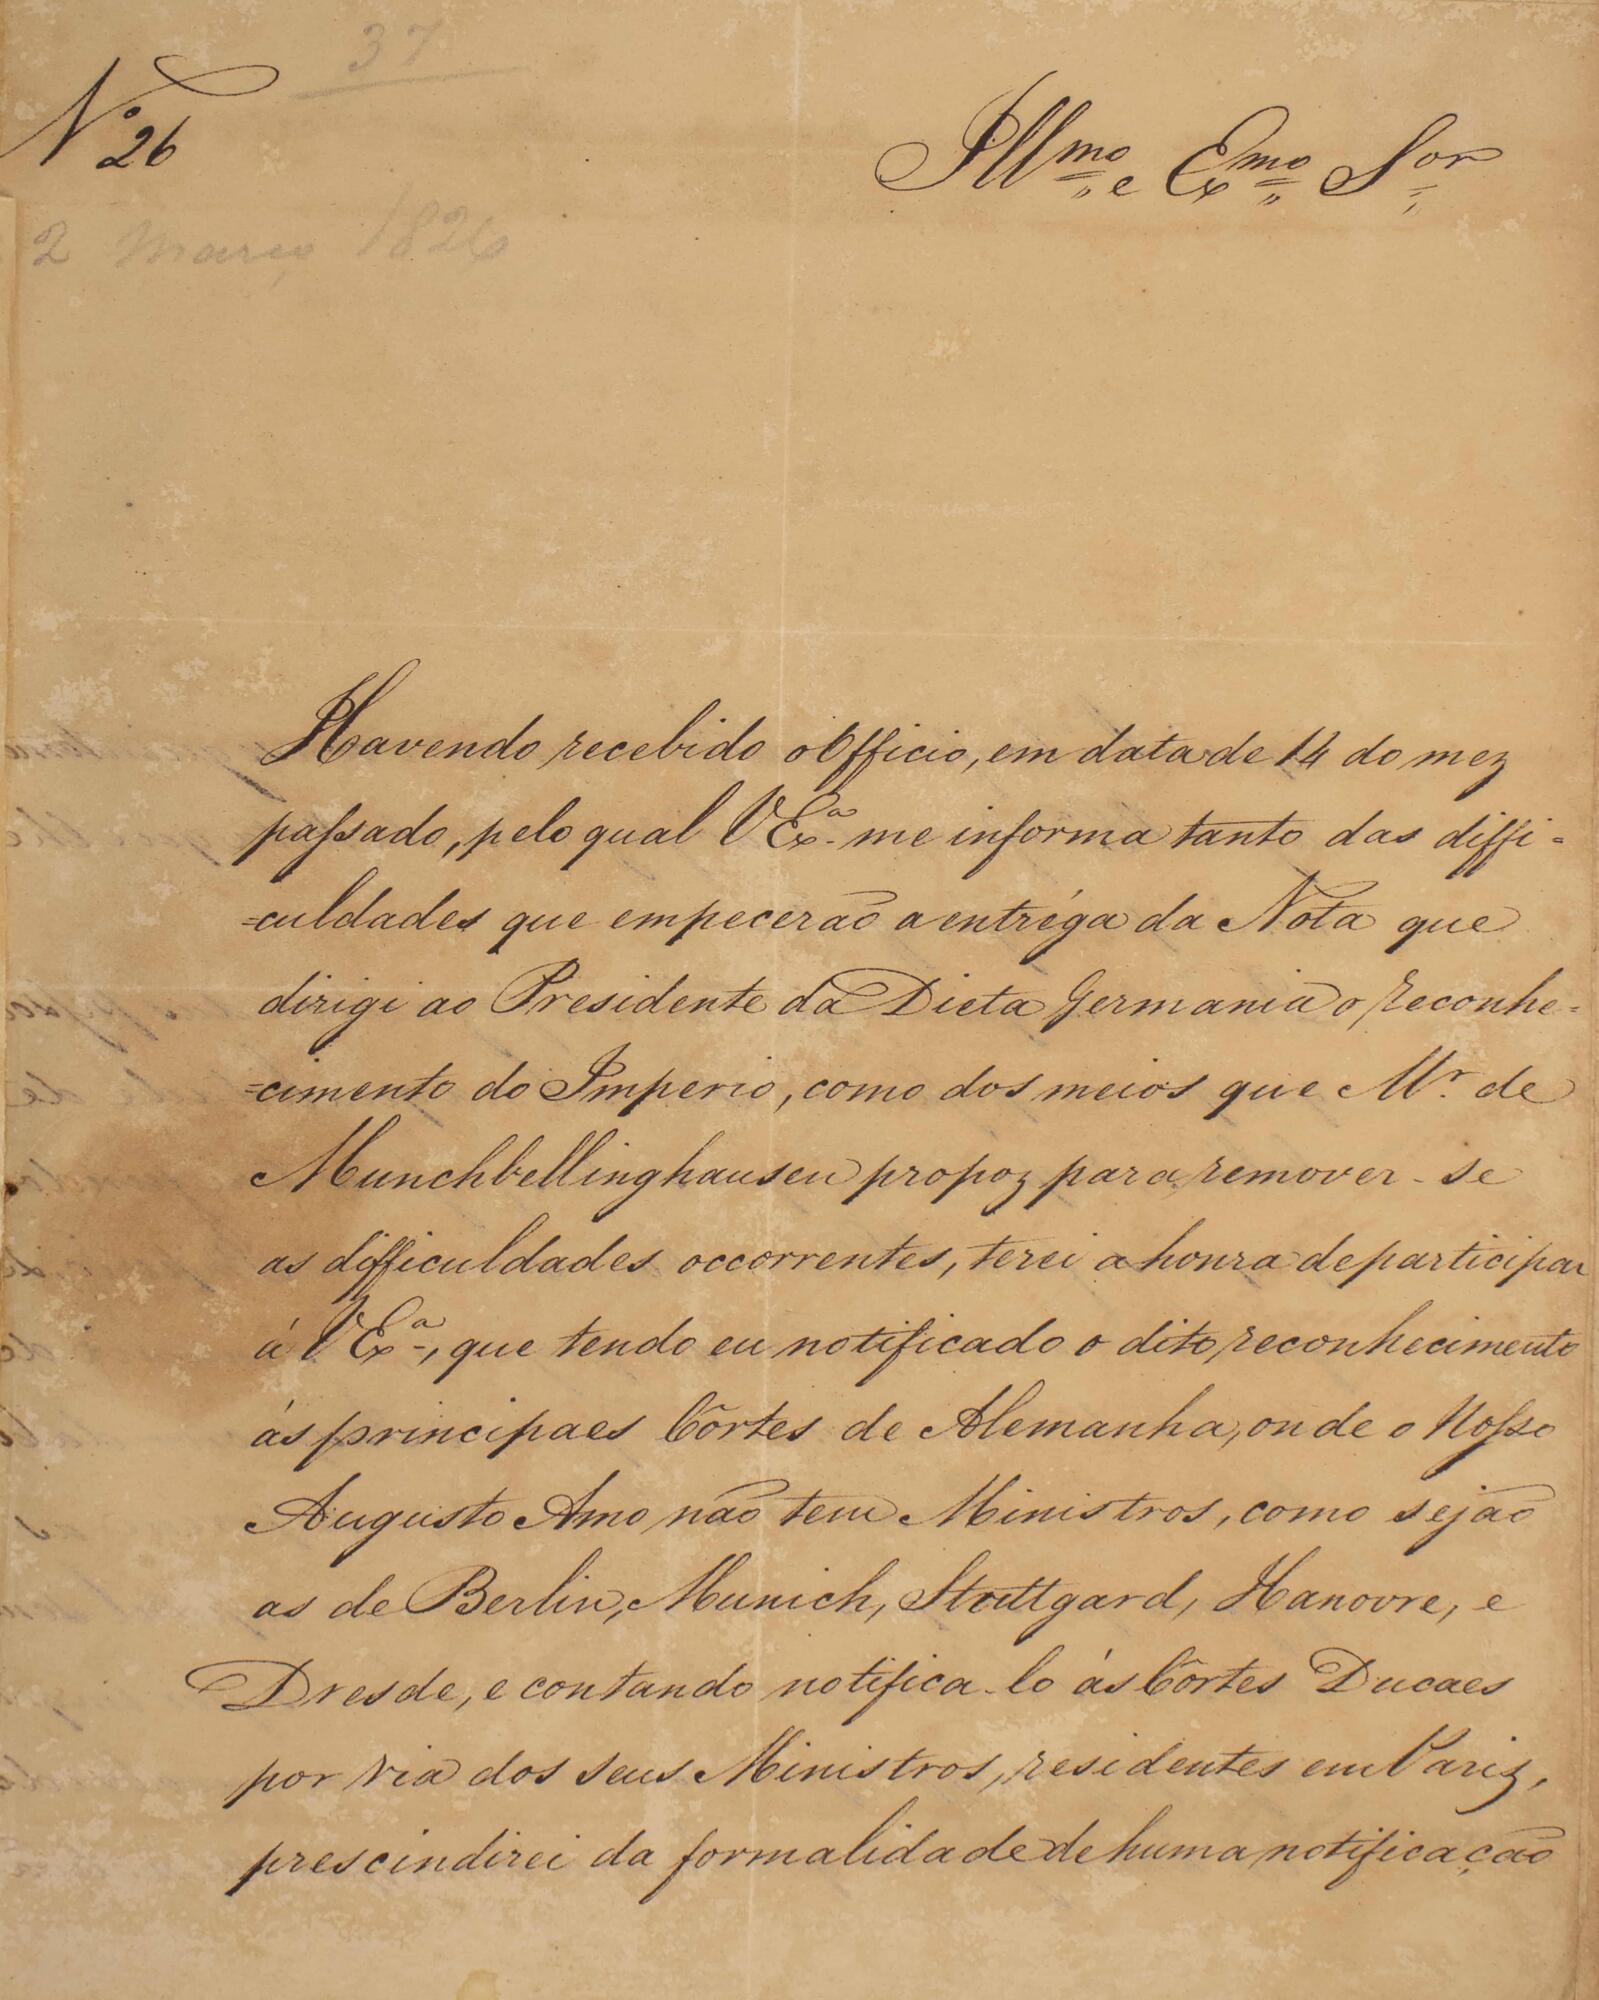 37
Nº 26
Illmo e Exmo Sor
2 Março 1826
Havendo recebido o Officio, em data de 14 do mez
passado, pelo qual V Exa. me informa tanto das diffi-
=culdades que empecerão a entréga da Nota que
dirigi ao Presidente da Dieta Germania o reconhe-
=cimento do Imperio, como dos meios que Mr. de
Munchbellinghausen propoz para remover-se
as difficuldades occorrentes, terei a honra de participar
á V Exa., que tendo eu notificado o dito reconhecimento
ás principaes Côrtes de Alemanha, onde o Nosso
Augusto Amo não tem Ministros, como sejão
as de Berlin, Munich, Stuttgard, Hanovre, e
Dresde, e contando notifica-lo ás Côrtes Ducaes
por via dos seus Ministros, residentes em Pariz,
prescindirei da formalidade de huma notificação